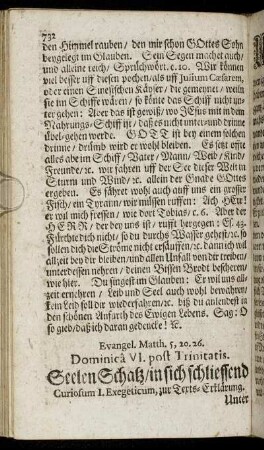 732
den Himmel rauben / den mir schon GOttes Sohn
beygelegt im Glauben. Sein Segen machet auch /
und alleine reich / Sprüchwört. c. 10. Wir können
viel besser uff diesen pochen / als uff Julium Cæsarem,
oder einen Sinesischen Käyser / die gemeynet / weiln
sie im Schiffe wären / so könte das Schiff nicht un-
ter gehen: Aber das ist gewiß / wo JEsus mit in dem
Nahrungs-Schiff ist / daß es nicht unter- und drinne
übel-gehen werde. GOTT ist bey einem solchen
drinne / drümb wird er wohl bleiben. Es sezt offte
alles aber im Schiff / Vater / Mann / Weib / Kind /
Freunde / ꝛc. wir fahren uff der See dieser Welt in
Sturm und Wind / ꝛc. allein der Gnade GOttes
ergeben. Es fähret wohl auch auff uns ein grosser
Fisch / ein Tyrann / wir müssen ruffen: Ach HErr!
er wil mich fressen / wie dort Tobias / c. 6. Aber der
HERR / der bey uns ist / rufft hergegen: Es. 43.
Fürchte dich nicht / so du durchs Wasser gehest / ꝛc. so
sollen dich die Ströme nicht ersäuffen / ꝛc. dann ich wil
allzeit bey dir bleiben / und allen Unfall von dir treiben /
unterdessen nehren / deinen Bissen Brodt bescheren /
wie hier. Du singest im Glauben: Er wil uns all-
zeit ernehren / Leib und Seel auch wohl bewahren /
kein Leid soll dir wiederfahren / ꝛc. biß du anlendest in
den schönen Anfurth des Ewigen Lebens. Sag: O
so gieb / daß ich daran gedencke! ꝛc.
Evangel. Matth. 5, 20. 26.
Dominicâ VI. post Trinitatis.
Seelen Schatz / in sich schliessend
Curiosum I. Exegeticum, zur Texts-Erklärung.
Unter